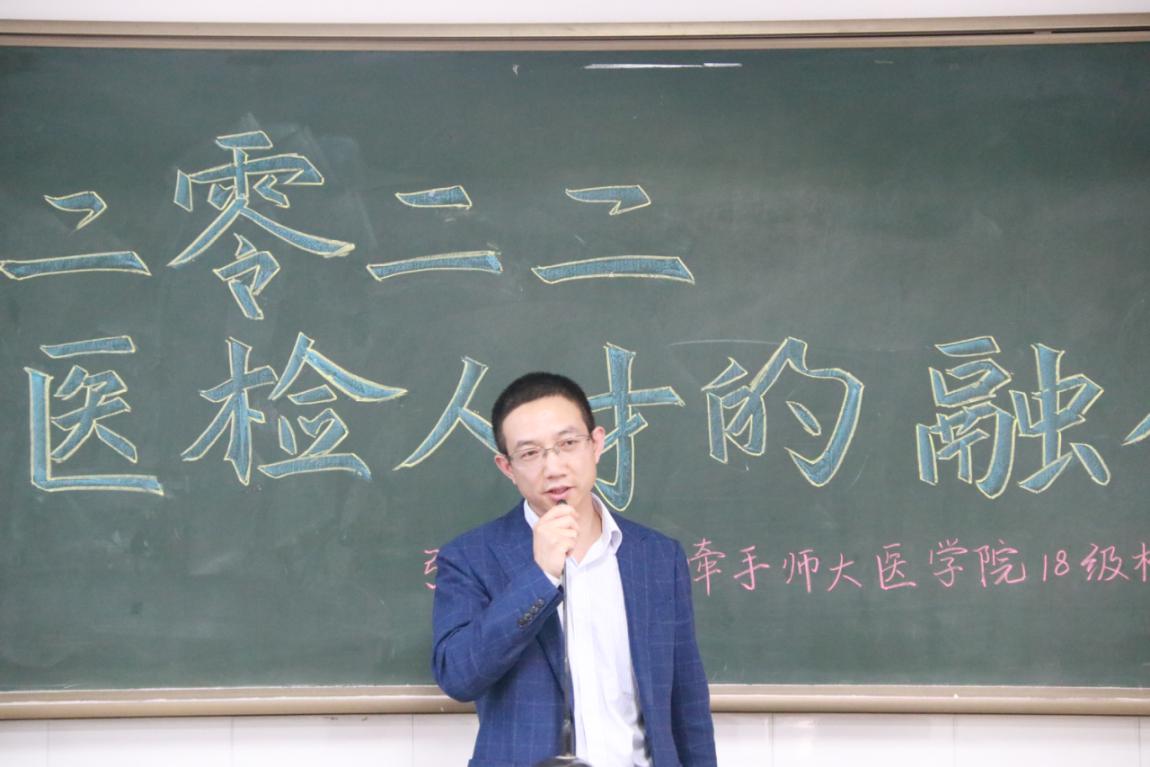 二零二二
医检人才的融
牵手师大医学院18级